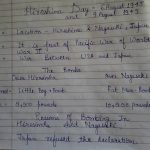 Hiroshima Day - 6 August 1945
and 9 August 1945
Location - Hiroshima & Nagasaki, Japan
It is part of Pacific War of World
War II
War Between USA and Japan
The Bombs
Over Hiroshima Over Nagasaki
Little Boy Bomb Fat Man Bomb
9,000 pounds 10,000 pounds
Reasons of Bombing In
Hiroshima And Nagasaki
Japan refused the declaration